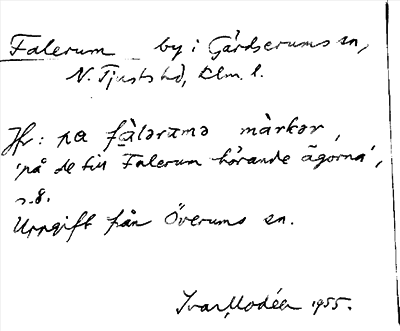 Falerum by i Gärdserums sn,
N. Tjusts hd, Klm. l.
Jfr: pa fàlərumə màrkər,
'på de till Falerum hörande ägorna',
s. 8.
Uppgift från Överums sn.
Ivar Modéer 1955.